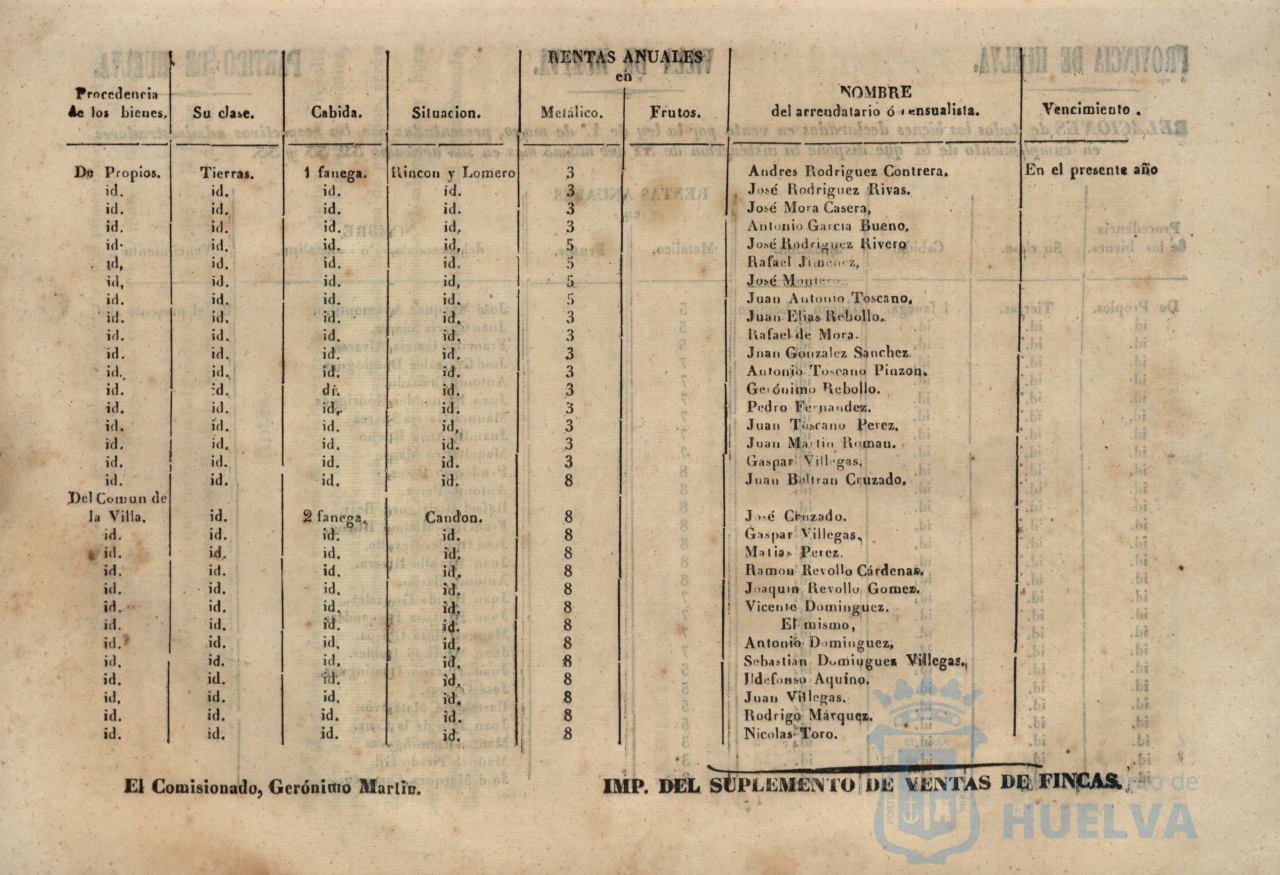 RENTAS ANUALES
en
Procedencia de los bienes. Su clase. Cabida. Situacion. Metálico. Frutos. NOMBRE del arrendatario ó censualista. Vencimiento.
De Propios. Tierras. 1 fanega. Rincon y Lomero 3 Andres Rodriguez Contrera. En el presente año
id. id. id. id. 3 José Rodriguez Rivas.
id. id. id. id. 3 José Mora Casera,
id. id. id. id, 3 Antonio Garcia Bueno.
id. id. id. id, 5 José Rodriguez Rivero
id, id. id. id. 5 Rafael Jimenez,
id, id. id. id, 5 José Montero.
id. id. id. id. 5 Juan Antonio Toscano,
id. id. id. id, 3 Juan Elias Rebollo.
id. id. id. id. 3 Rafael de Mora.
id. id. id. id. 3 Juan Gonzalez Sanchez
id. id. id. id. 3 Antonio Toscano Pinzon.
id. id. di. id. 3 Gerónimo Rebollo.
id. id. id. id. 3 Pedro Fernandez.
id. id. id. id, 3 Juan Toscano Perez.
id. id. id. id, 3 Juan Martin Roman.
id. id. id. id. 3 Gaspar Villegas,
id. id. id. id. 8 Juan Beltran Cruzado.
Del Comun de
la Villa. id. 2 fanega. Candon. 8 José Cruzado.
id. id. id. id. 8 Gaspar Villegas,
id. id. id. id. 8 Matias Perez.
id. id. id. id. 8 Ramon Revollo Cárdenas.
id. id. id. id. 8 Joaquin Revollo Gomez.
id. id. id. id. 8 Vicente Dominguez.
id. id. id. id. 8 El mismo,
id. id. id. id. 8 Antonio Dominguez,
id, id. id, id. 8 Sebastian Dominguez Villegas.
id. id. id. id. 8 Ildefonso Aquino.
id, id. id. id, 8 Juan Villegas.
id. id. id. id. 8 Rodrigo Márquez.
id. id. id. id. 8 Nicolas Toro.
El Comisionado, Gerónimo Martin. IMP. DEL SUPLEMENTO DE VENTAS DE FINCAS.
HUELVA